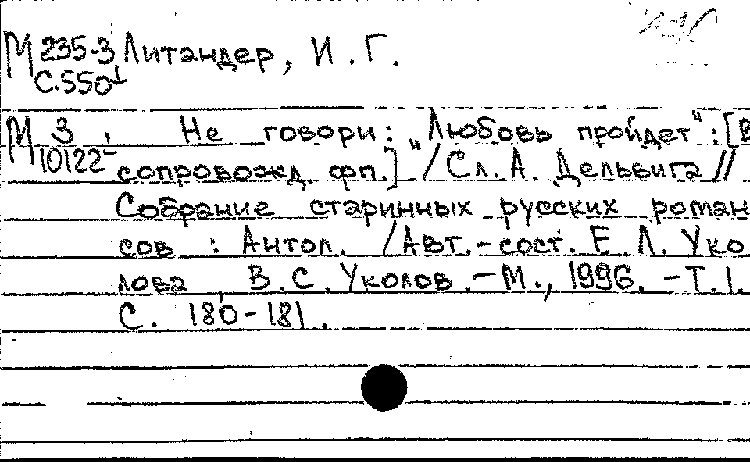 М 235-3 Литандер, И. Г.
С.550
М 3
10122 Не говори: „Любовь пройдет“: [В
сопровожд. фп.] / Сл. А. Дельвига //
Собрание старинных русских роман
сов : Антол. / Авт.-сост. Е. Л. Уко
лова, В. С. Уколов. – М., 1996. – Т. 1.
С. 180-181.